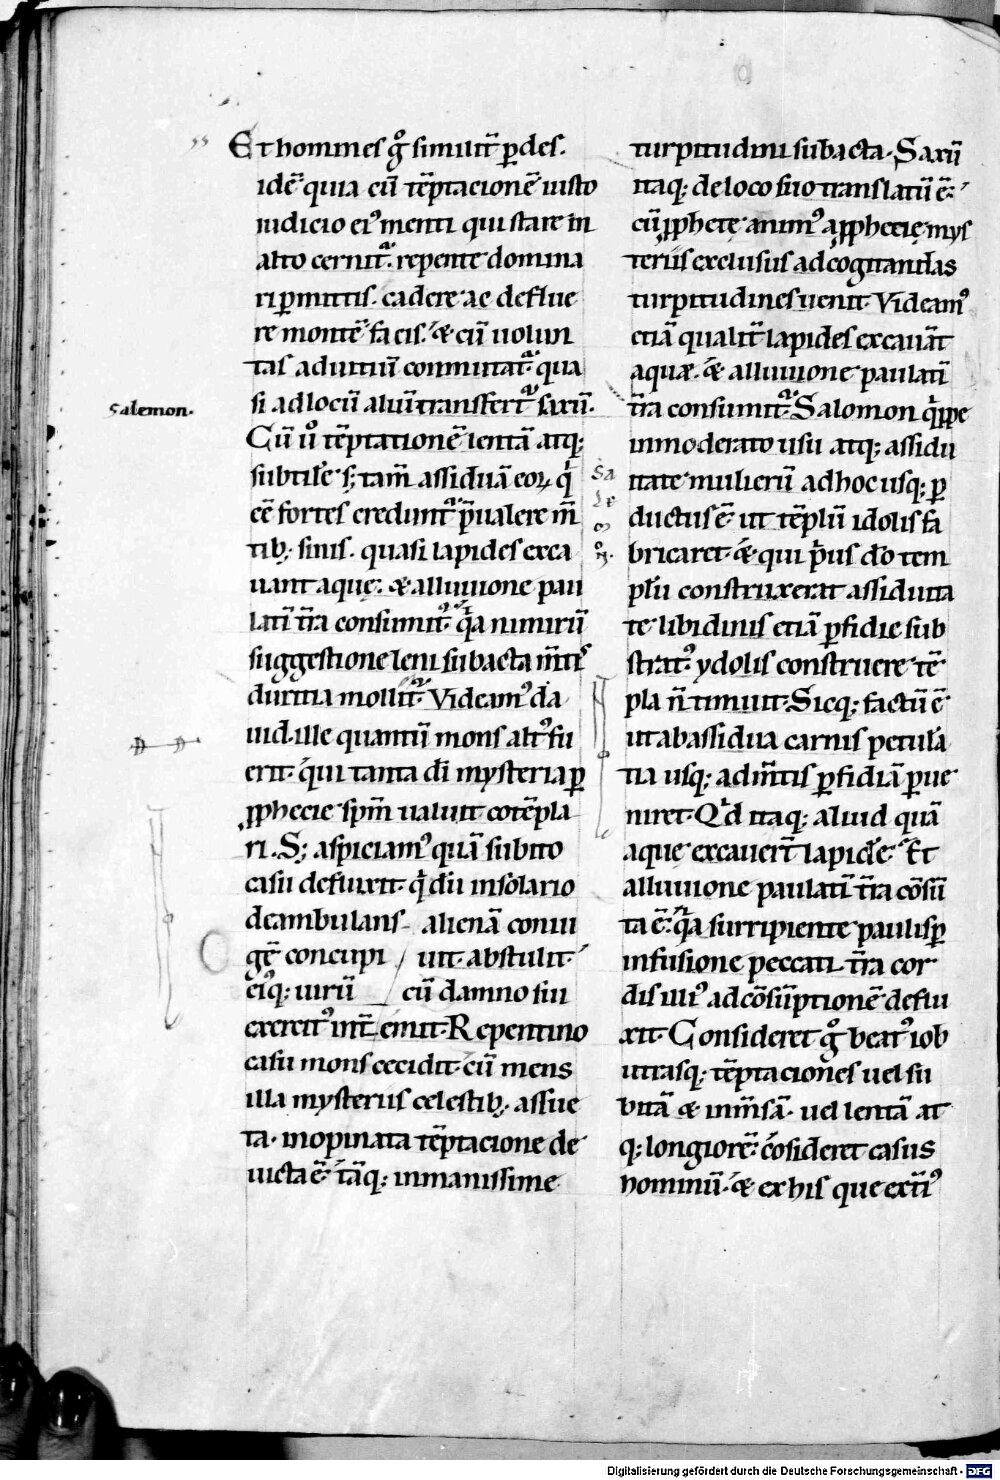 Et homines g̊ simulit̄ ꝑdes.
idē quia cū tēptacionē iusto
iudicio ei᷒ menti qui stare in
alto cernit᷒. repente domina
ri ꝑmittis. cadere ac deflue
re montē facis. & cū uolun
tas ad uitiū commutat᷒ qua
si ad locū aliū transfert᷒ saxū.
Cū u̅ tēptationē lentā atq;
subtilē s; tam̄ assiduā eoꝝ qͥ
eē fortes credunt᷒ p̄ualere m̄
tib; sinis. quasi lapides exca
uant aquę. & alluuione pau
latī t̄ra consumit᷒ qͥa nimirū
suggestione leni subacta m̄tis
duritia mollit᷒. Videam᷒ dā
uid. ille quantū mons alt᷒ fu
erit. qui tanta dī mysteria ꝑ
ꝓphecie sp̄m ualuit cōtēpla
ri. S; aspiciam᷒ quā subito
casu defluxit. qͥ dū in solario
deambulans alienā coniu
gē concupiuit. abstulit.
ei᷒q; uirū cū damno sui
exercit᷒ int̄emit. Repentino
casu mons cecidit. cū mens
illa mysteriis celestib; assue
ta. inopinata tēptacione de
uicta ē. tāq; inmanissime
turpitudini subacta. Saxū
itaq; de loco suo translatū ē.
cū ꝓphetę anim᷒ a ꝓphecię mys
teriis exclusus ad cogitandas
turpitudines uenit. Videam᷒
etiā qualit̄ lapides excauāt
aquæ. & alluuione paulatī
t̄ra consumit᷒. Salomon q̄ppe
inmoderato usu atq; assidu
itate mulierū ad hoc usq; ꝑ
ductus ē ut tēplū idolis fa
bricaret. & qui p̄us dō tem
plū construxerat assiduita
te libidinis etiā ꝑfidie sub
strat᷒ ydolis construere tē
pla n̄ timuit. Sicq; factū ē
ut ab assidua carnis petulā
tia usq; ad m̄tis ꝑfidiā ꝑue
niret. Qͥd itaq; aliud quā
aque excauer̄t lapidē. Et
alluuione paulatī t̄ra cōsū
ta ē. qͥa surripiente paulisꝑ
infusione peccati t̄ra cor
dis illi᷒ ad cōsūptionē deflu
xit. Consideret g̊ beat᷒ iob
utrasq; tēptaciones uel su
bitā & inm̄sā. uel lentā at
q; longiorē. cōsideret casus
hominū. & ex his que extī᷒
Salemon.
Sa
le
m
on.